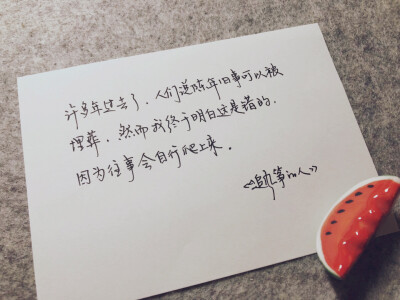 许多年过去了，人们说陈年旧事可以被
埋葬，然而我终于明白这是错的，
因为往事会自行爬上来。
《追风筝的人》